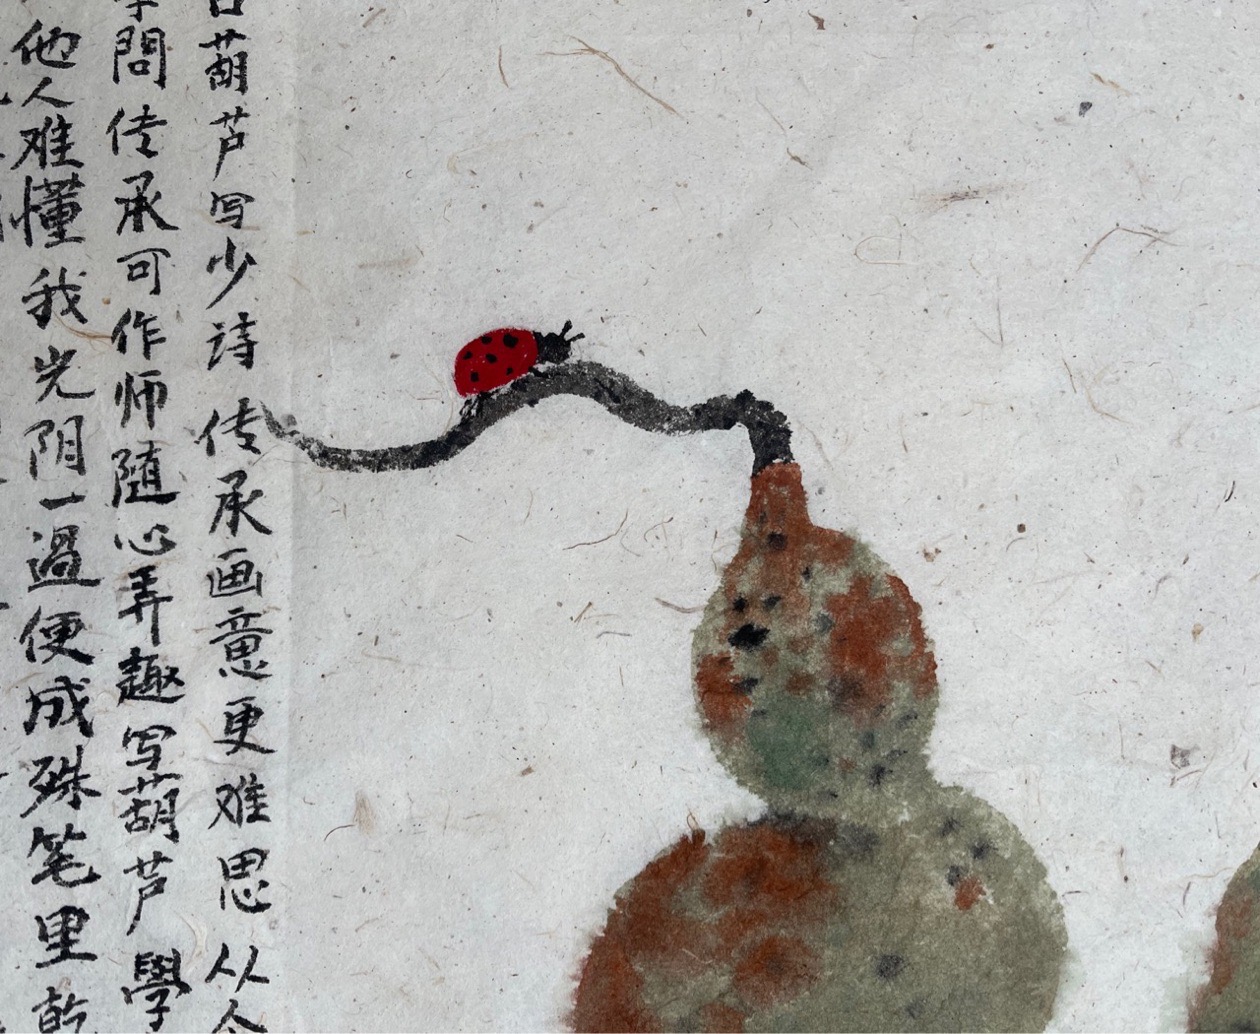 葫芦写少诗传承画意更难思从今
問传承可作师随心弄趣写葫芦學
他人难懂我光阴一過便成殊笔里乾